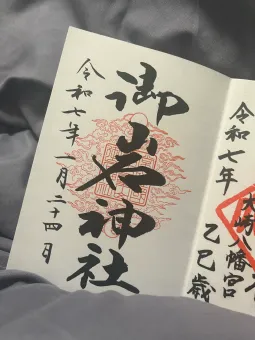 令和七年
大崎八幡宮
乙巳歳
御岩神社
令和七年一月二十四日